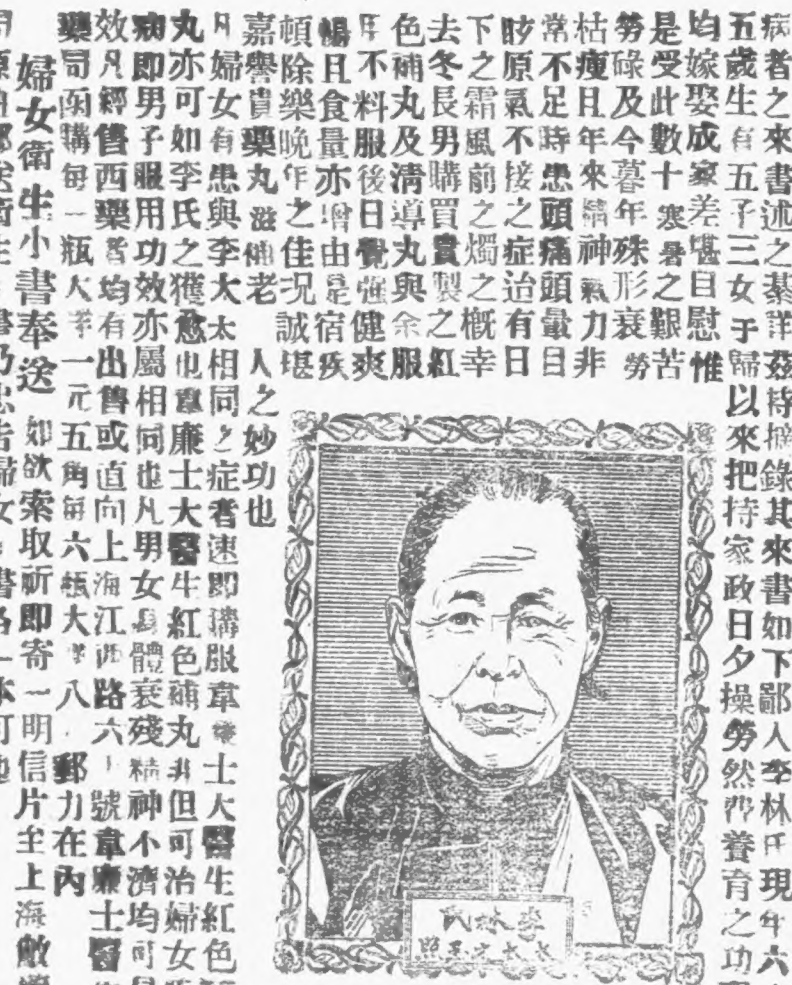 病者之來書述之綦詳茲特摘錄其來書如下鄙人李林氏現年六
五歲生有五子三女于歸以來把持家政日夕操勞然養育之功
均嫁娶成家差堪自慰惟
是受此數十寒暑之艱苦
勞碌及今暮年殊形衰勞
枯瘦且年來精神氣力非
常不足時患頭痛頭暈目
眩原氣不接之症迨有日
下之霜風前之燭之概幸
去冬長男購買貴製之紅
色補丸及清導丸與余服
不料服後日覺強健爽
暢且食量亦增由是宿疾
頓除樂晚年之佳況誠堪
嘉譽貴藥丸滋補老人之妙功也
凡婦女有患與李太太相同之症者速即購服韋廉士大醫生紅色
丸亦可如李氏之獲愈也韋廉士大醫生紅色補丸非但可治婦女
病即男子服用功效亦屬相同也凡男女身體衰殘精神不濟均可
效凡經售西藥者均有出售或直向上海江西路六十號韋廉士醫
藥局函購每一瓶大洋一元五角每六瓶大洋八 郵力在內
婦女衛生小書奉送 如欲索取祈即寄一明信片至上海敝
李林氏
太太玉照